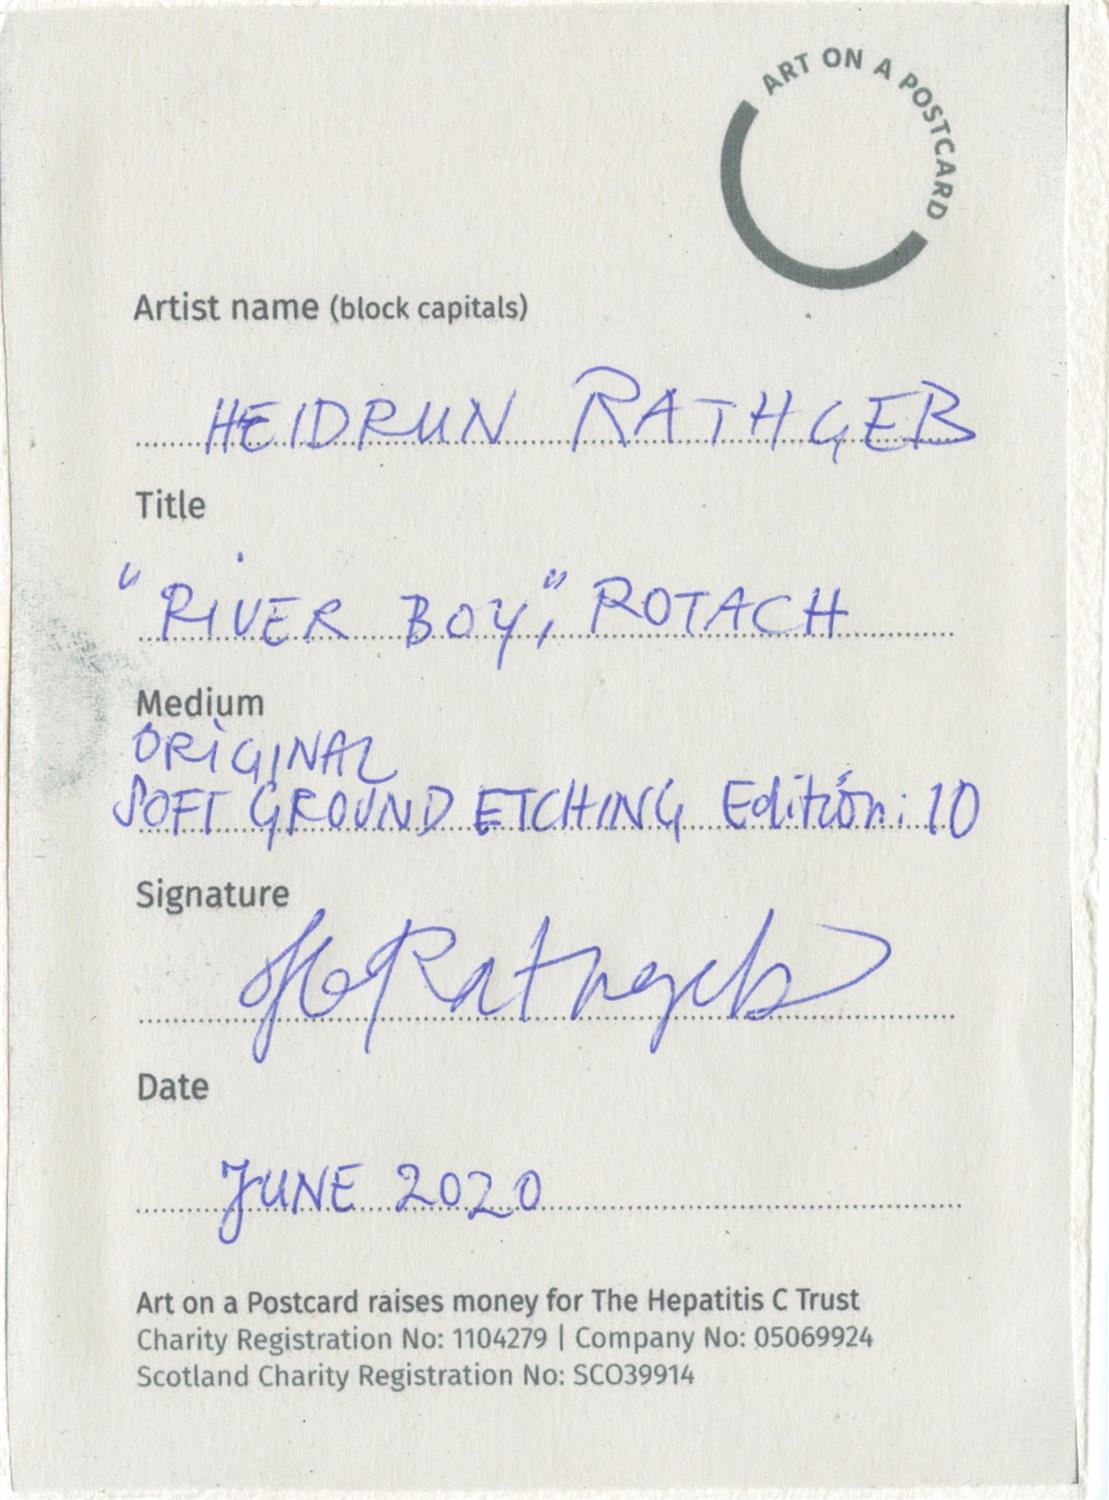 ART ON A POSTCARD
Artist name (block capitals)
HEIDRUN RATHGEB
Title
"RIVER BOY", ROTACH
Medium
ORIGINAL
SOFT GROUND ETCHING Edition: 10
Signature
H Rathgeb
Date
JUNE 2020
Art on a Postcard raises money for The Hepatitis C Trust
Charity Registration No: 1104279 | Company No: 05069924
Scotland Charity Registration No: SCO39914